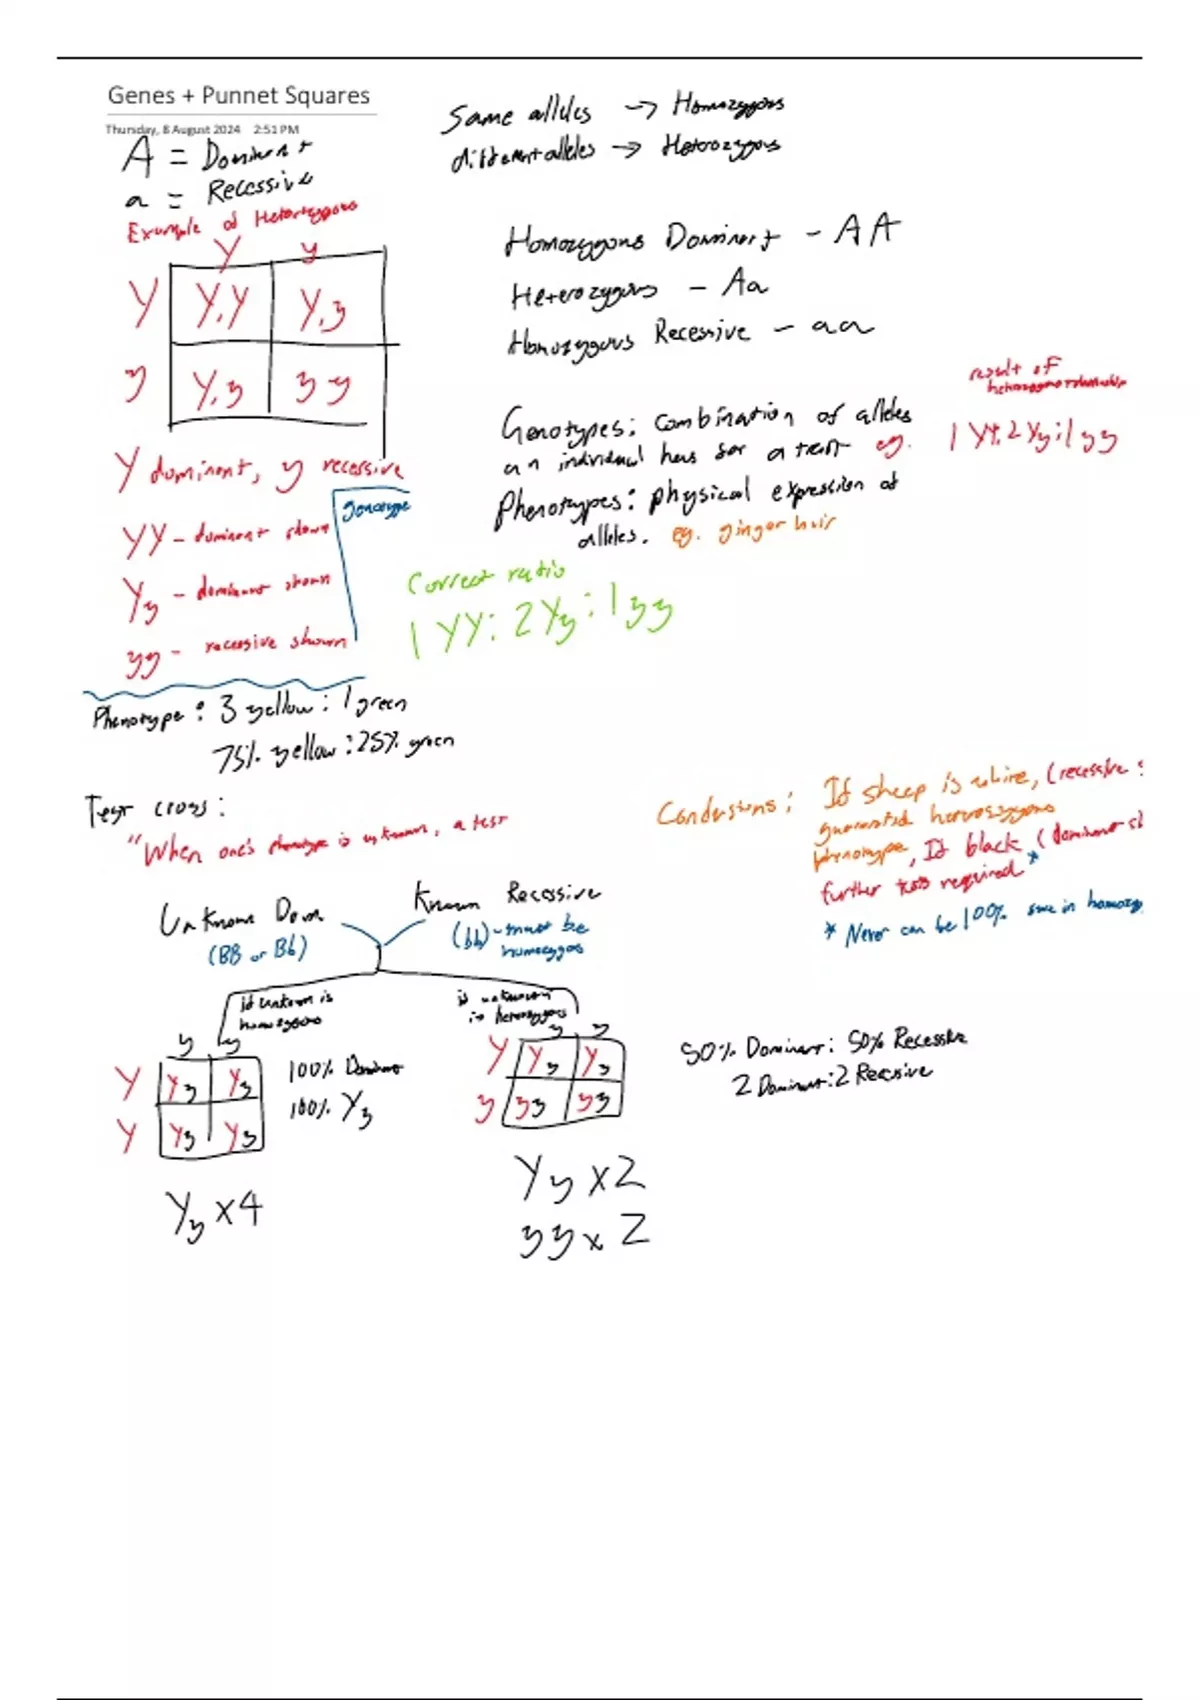 Genes + Punnet Squares
Thursday, 8 August 2024 2:51 PM
A = Dominant
a = Recessive
Same alleles → Homozygous
different alleles → Heterozygous
Example of Heterozygous
Y y
Y Y,Y Y,y
y Y,y yy
Y dominant, y recessive
genotype
YY - dominant shown
Yy - dominant shown
yy - recessive shown
Homozygous Dominant - AA
Heterozygous - Aa
Homozygous Recessive - aa
Genotypes: combination of alleles
an individual has for a trait eg.
result of
1 YY:2 Yy:1 yy
Phenotypes: physical expression of
alleles. eg. ginger hair
Correct ratio
1 YY: 2 Yy: 1 yy
Phenotype: 3 yellow: 1 green
75% yellow: 25% green
Test cross:
"When one's phenotype is unknown, a test
Unknown Dom
(BB or Bb)
Known Recessive
(bb) - must be
homozygous
if unknown is
homozygous
y y
Y Yy Yy
Y Yy Yy
100% Dominant
100% Yy
Yy x4
if unknown
is heterozygous
y y
Y Yy Yy
y yy yy
Yy x2
yy x 2
50% Dominant: 50% Recessive
2 Dominant:2 Recessive
Conclusions: If sheep is white, (recessive
guaranteed homozygous
phenotype, If black (dominant
further tests required *
* Never can be 100% sure in